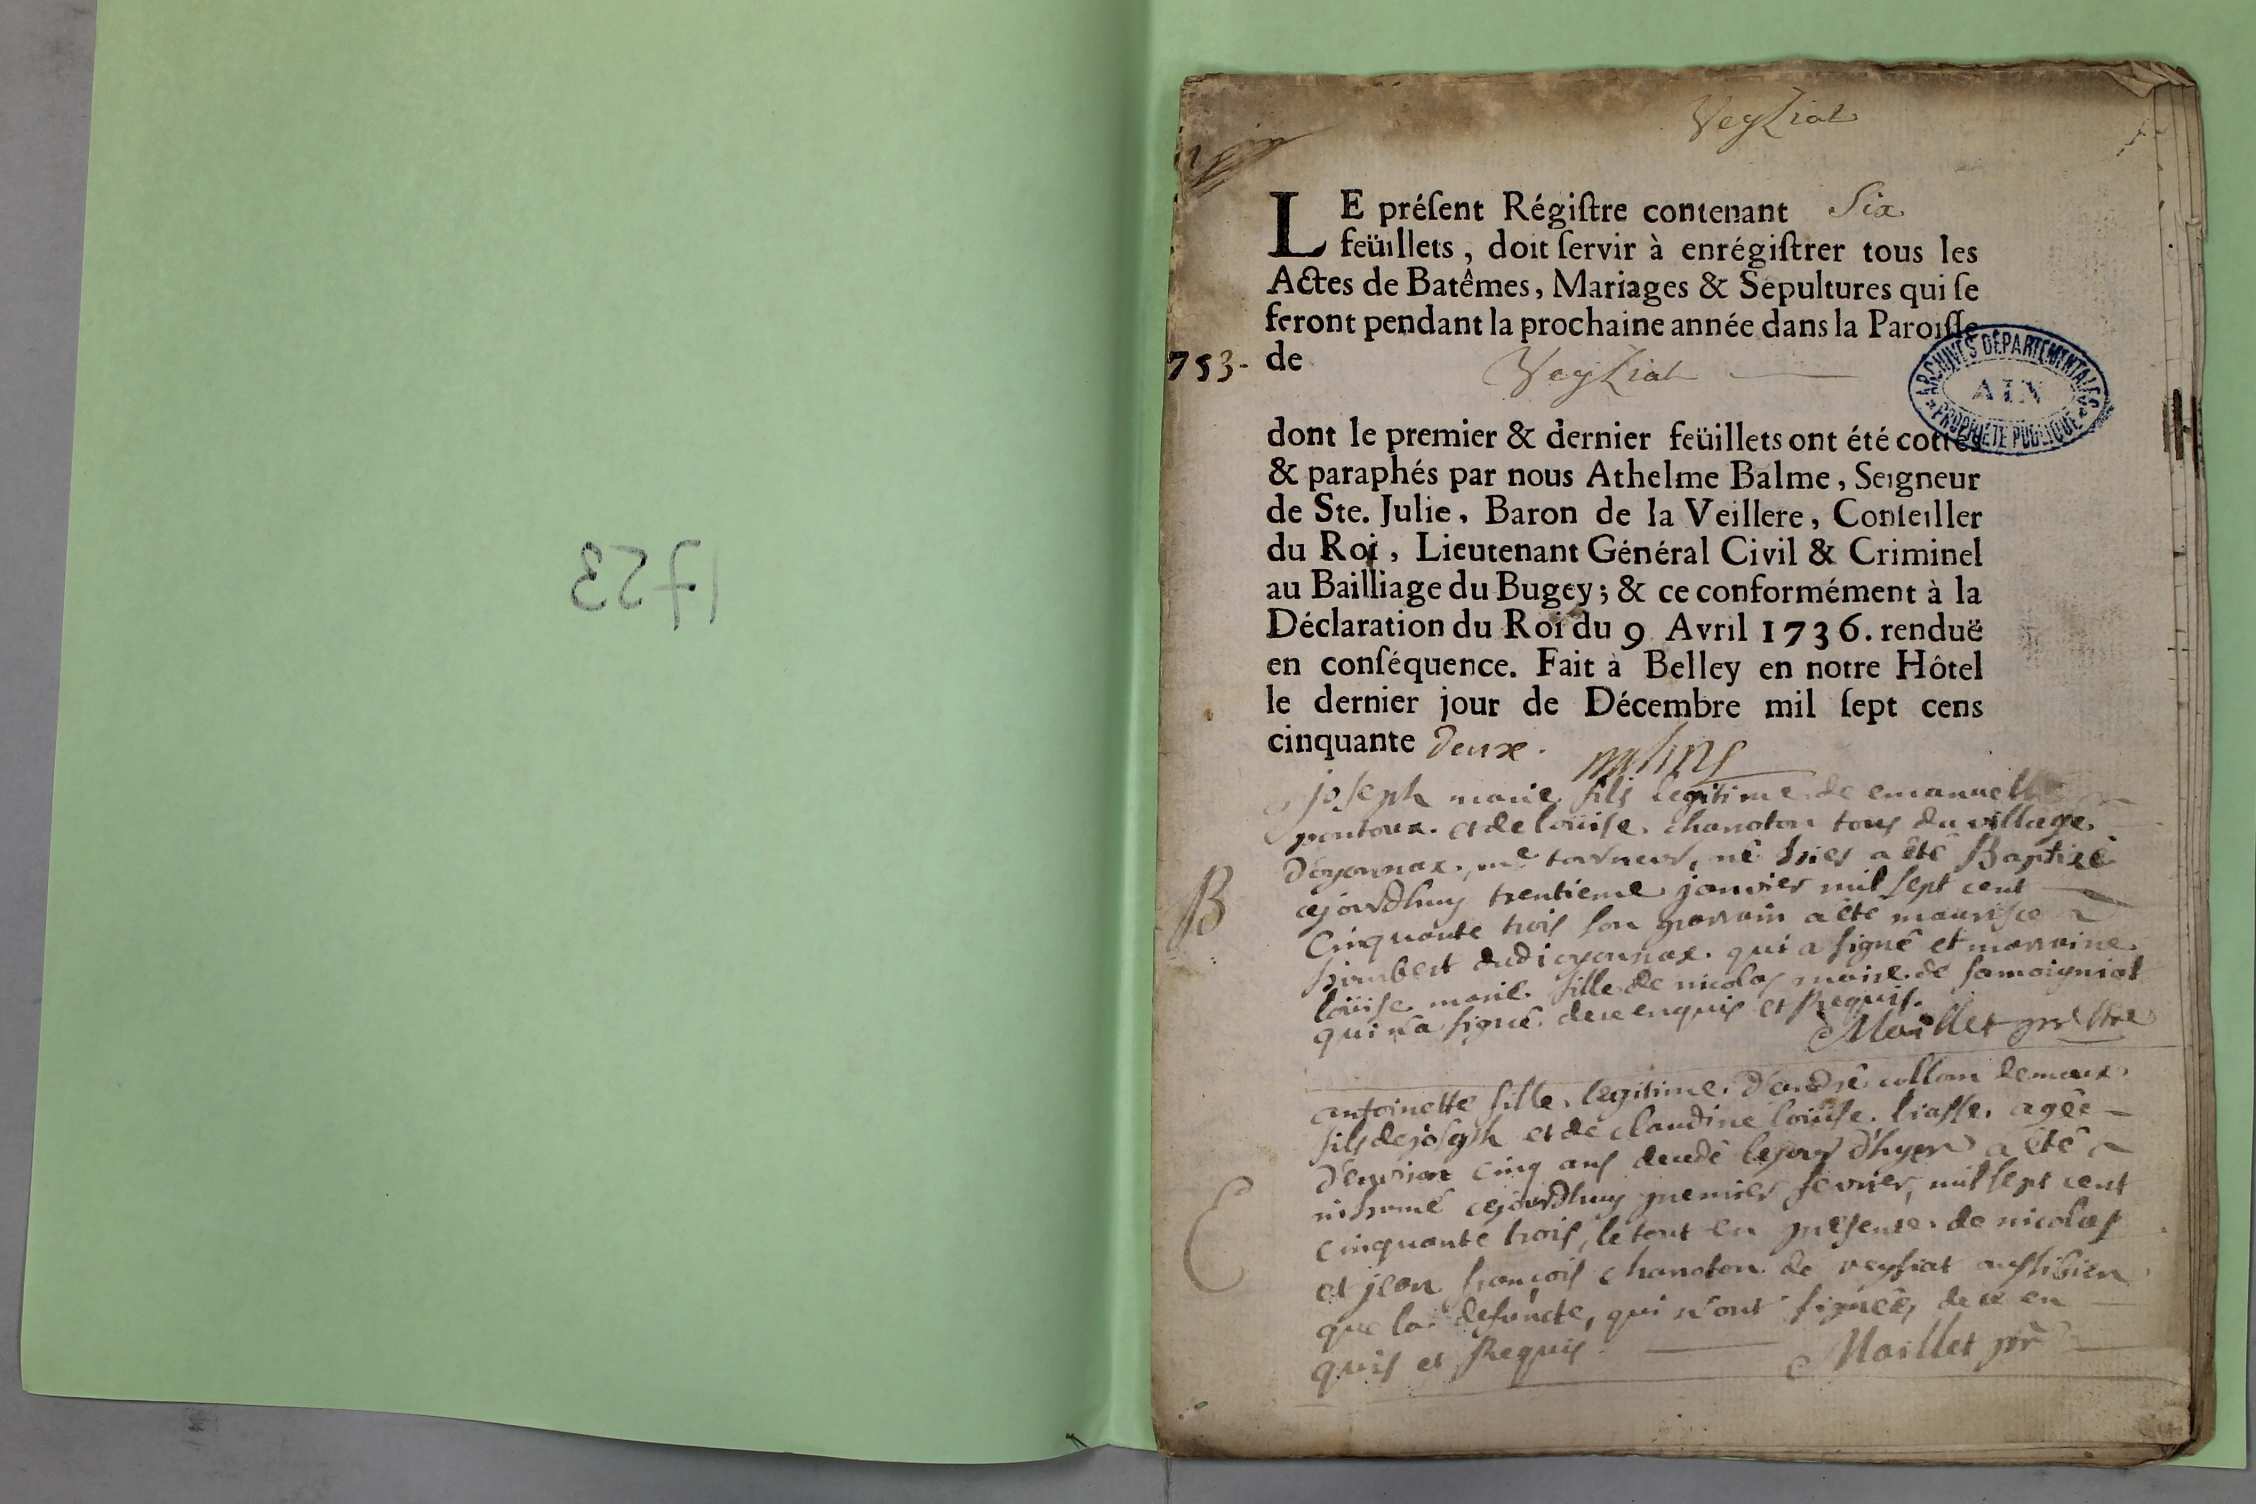 1753
Veyziat
LE préſent Régiſtre contenant Six
feüillets, doit ſervir à enrégiſtrer tous les
Actes de Batêmes, Mariages & Sepultures qui ſe
feront pendant la prochaine année dans la Paroiſſe
753- de Veyziat
ARCHIVES DÉPARTEMENTALES
AIN
PROPRIÉTÉ PUBLIQUE
dont le premier & dernier feüillets ont été cottés
& paraphés par nous Athelme Balme, Seigneur
de Ste. Julie, Baron de la Veillere, Conſeiller
du Roi, Lieutenant Général Civil & Criminel
au Bailliage du Bugey; & ce conformément à la
Déclaration du Roi du 9 Avril 1736. renduë
en conſéquence. Fait à Belley en notre Hôtel
le dernier jour de Décembre mil ſept cens
cinquante deux.
joseph marie fils legitime de emanuel
pontoux et de loüise chanoton tous du village
d'oyonnax, me torneur, né hier a été Baptizé
B
cejourdhuy trentieme janvier mil sept cent
cinquante trois son parrain a été maurisce
himbert dudi oyonnax qui a signé et marraine
loüise marie fille de nicolas maire de samoigniat
qui n'a signé de ce enquis et Requis.
Maillet prestre
antoinette fille legitime d'andré collom demoux
fils de joseph et de claudine loüise liasse agée
d'environ cinq ans decedé le jour d'hyer a été
inhumé cejourdhuy premier fevrier, mil sept cent
E
cinquante trois, le tout en presence de nicolas
et jean françois chanoton de veyziat aussibien
que la defuncte, qui n'ont signéés de ce en
quis et Requis Maillet ptr